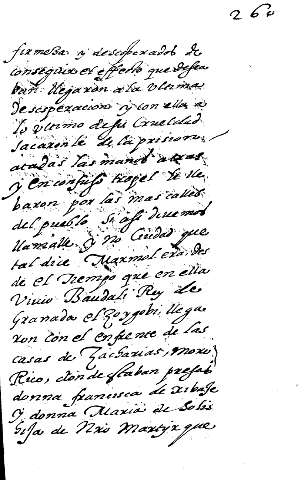 260
firmesa y desesperados de
conseguir el effecto que desea
ban. llegaron a la ultima
desesperacion y con ella a
lo ultimo de su Crueldad
sacaronle de la prision
atadas las manos atras
y en confuso tropel le lle
baron por las mas calles
del pueblo si assi devemos
llamalle y no Ciudad que
tal dice Marmol era, des
de el tiempo que en ella
Vivio Baudali Rey de
Granada el Zogoybi, llega
ron con el enfrente de las
casas de Zacharias, moro
Rico, donde estaban presas
donna francisca de Xibaje
y donna Maria de Solis
hija de Nro Martyr que